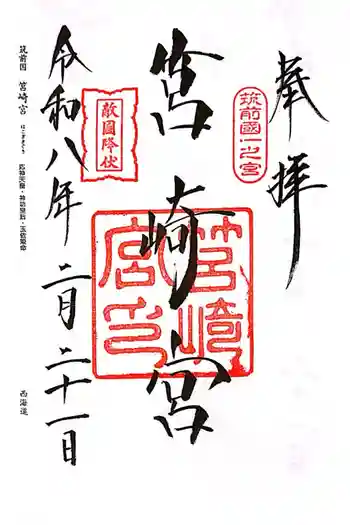 奉拝
筑前國一之宮
筥崎宮
筥崎宮印
敵國降伏
令和八年 二月二十一日
筑前国 筥崎宮 はこざきぐう 応神天皇・神功皇后・玉依姫命 西海道